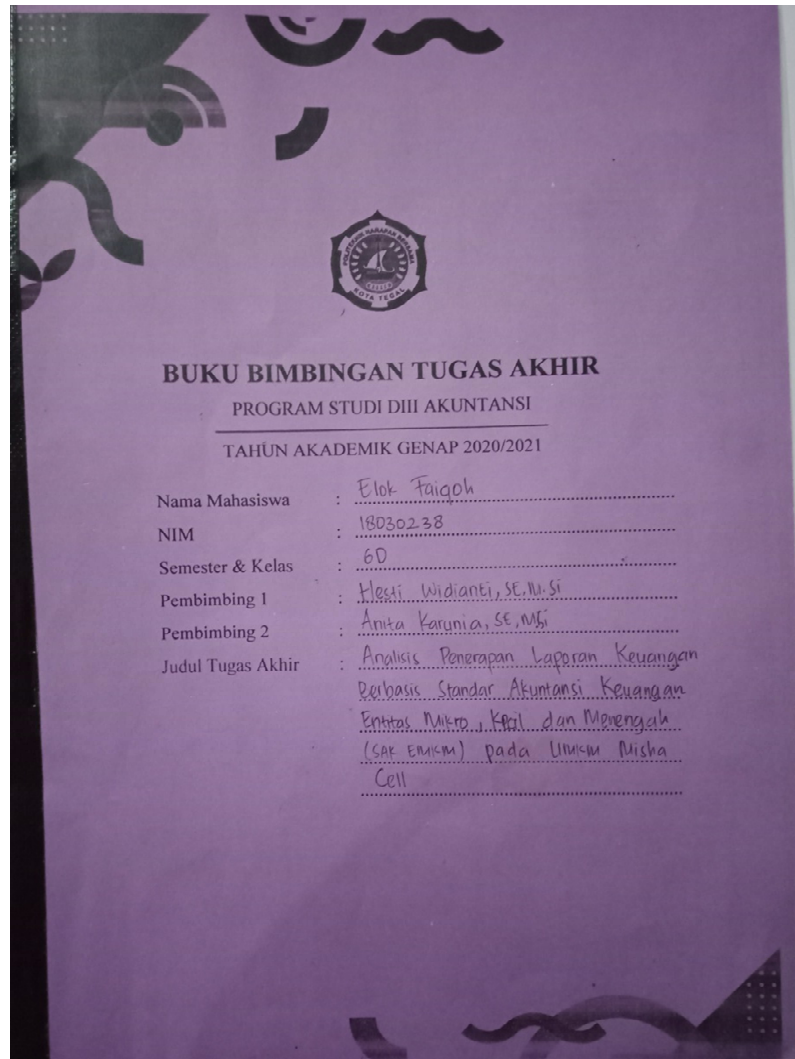 POLITEKNIK HARAPAN BERSAMA
KOTA TEGAL
BUKU BIMBINGAN TUGAS AKHIR
PROGRAM STUDI DIII AKUNTANSI
TAHUN AKADEMIK GENAP 2020/2021
Nama Mahasiswa : Elok Faiqoh
NIM : 18030238
Semester & Kelas : 6D
Pembimbing 1 : Hesti Widianti, SE, M.Si
Pembimbing 2 : Anita Karunia, SE, MSi
Judul Tugas Akhir : Analisis Penerapan Laporan Keuangan
Berbasis Standar Akuntansi Keuangan
Entitas Mikro, Kecil dan Menengah
(SAK EMKM) pada UMKM Misha
Cell